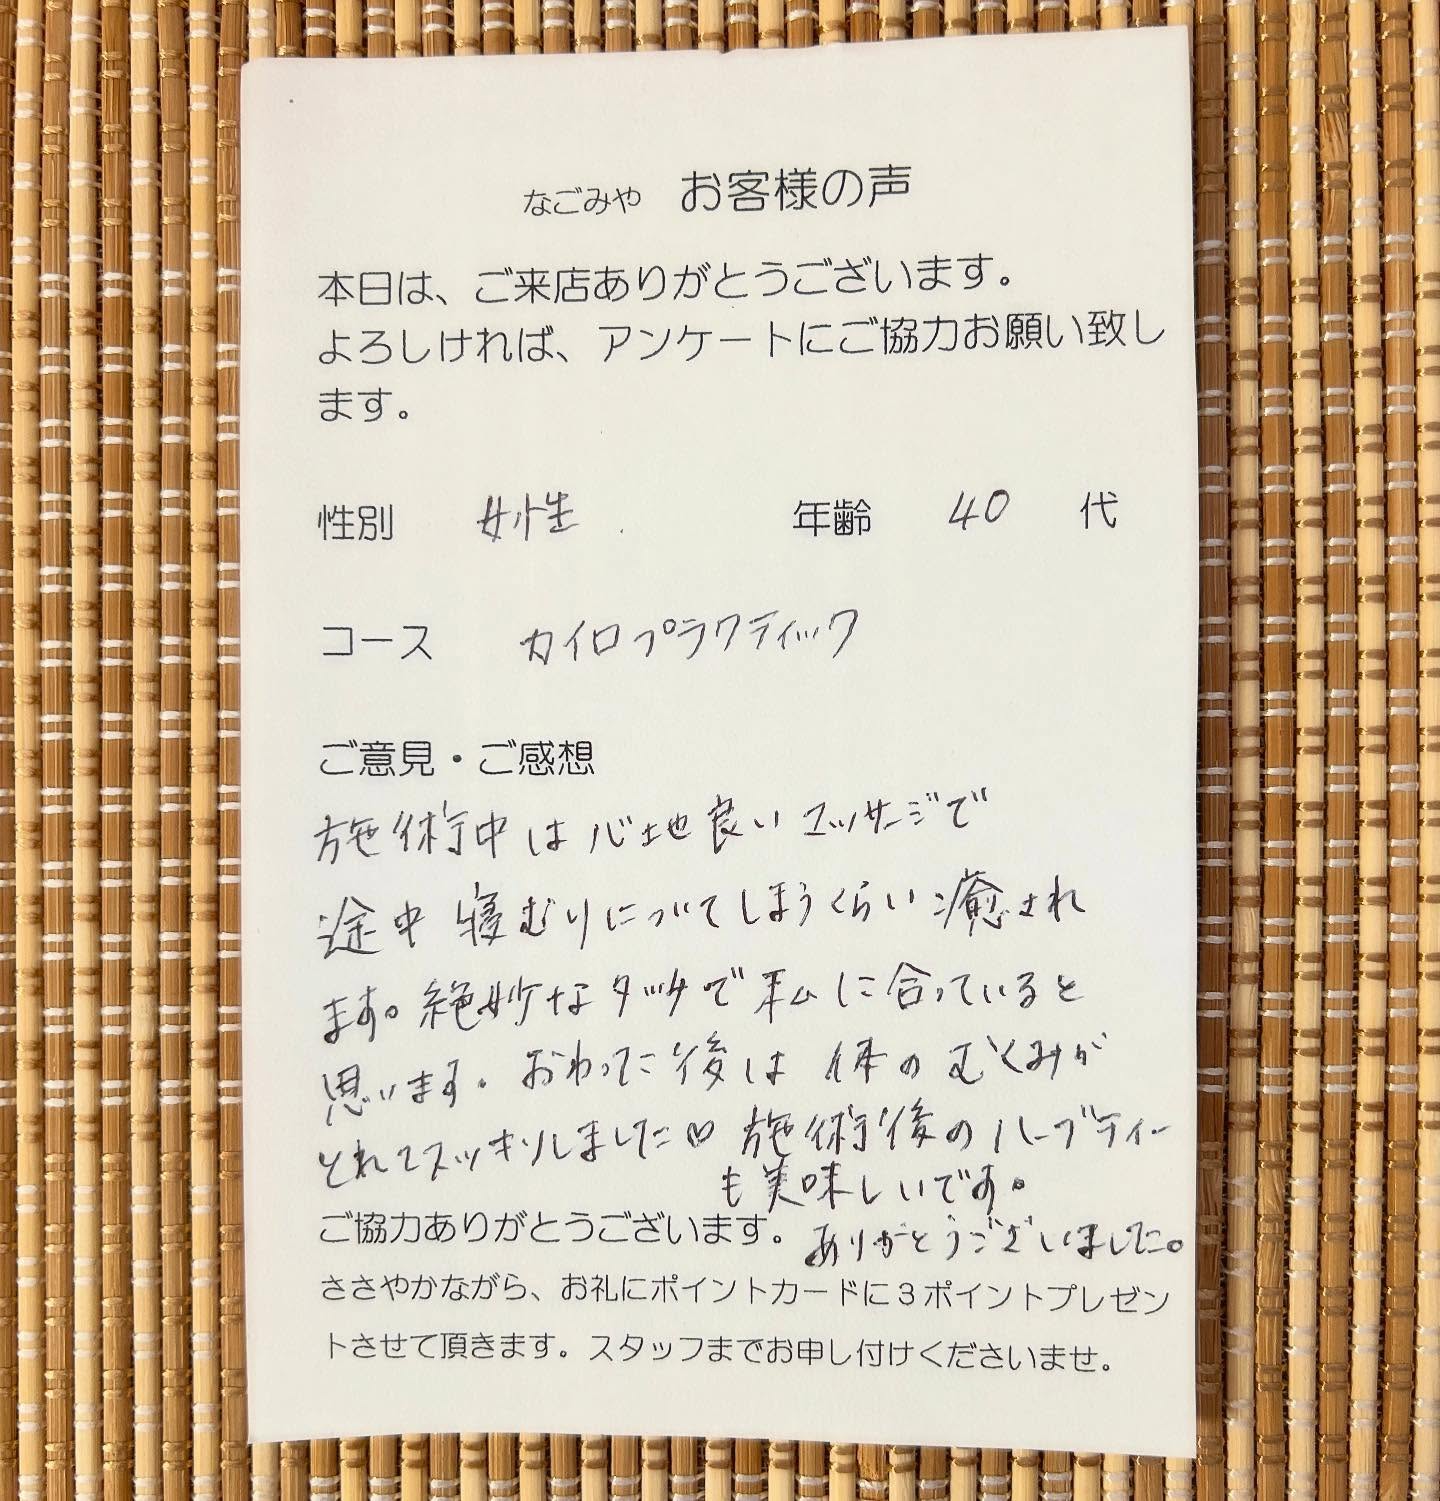 なごみや お客様の声
本日は、ご来店ありがとうございます。
よろしければ、アンケートにご協力お願い致し
ます。
性別 女性 年齢 40 代
コース カイロプラクティック
ご意見・ご感想
施術中は心地良いマッサージで
途中寝むりについてしまうくらい癒され
ます。絶妙なタッチで私に合っていると
思います。おわった後は体のむくみが
とれてスッキリしました♡ 施術後のハーブティー
も美味しいです。
ご協力ありがとうございます。 ありがとうございました。
ささやかながら、お礼にポイントカードに3ポイントプレゼン
トさせて頂きます。スタッフまでお申し付けくださいませ。